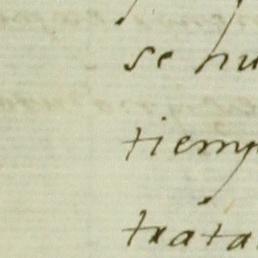 se hu
tiemp
trata